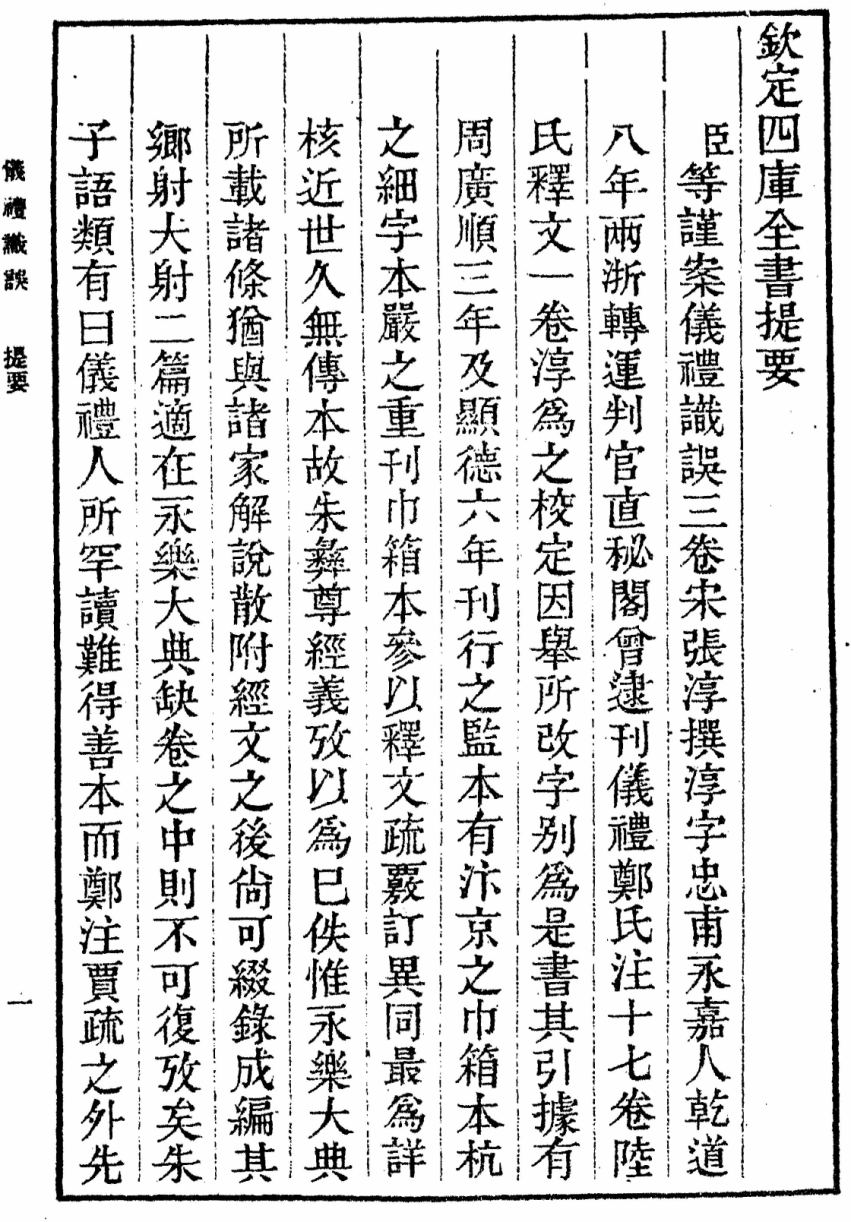 欽定四庫全書提要
臣等謹案儀禮識誤三卷宋張淳撰淳字忠甫永嘉人乾道
八年兩浙轉運判官直秘閣曾逮刊儀禮鄭氏注十七卷陸
氏釋文一卷淳爲之校定因舉所改字别爲是書其引據有
周廣順三年及顯德六年刊行之監本有汴京之巾箱本杭
之細字本嚴之重刊巾箱本參以釋文疏覈訂異同最爲詳
核近世久無傳本故朱彝尊經義攷以爲已佚惟永樂大典
所載諸條猶與諸家解說散附經文之後尙可綴錄成編其
鄉射大射二篇適在永樂大典缺卷之中則不可復攷矣朱
子語類有曰儀禮人所罕讀難得善本而鄭注賈疏之外先
儀禮識誤　提要
一